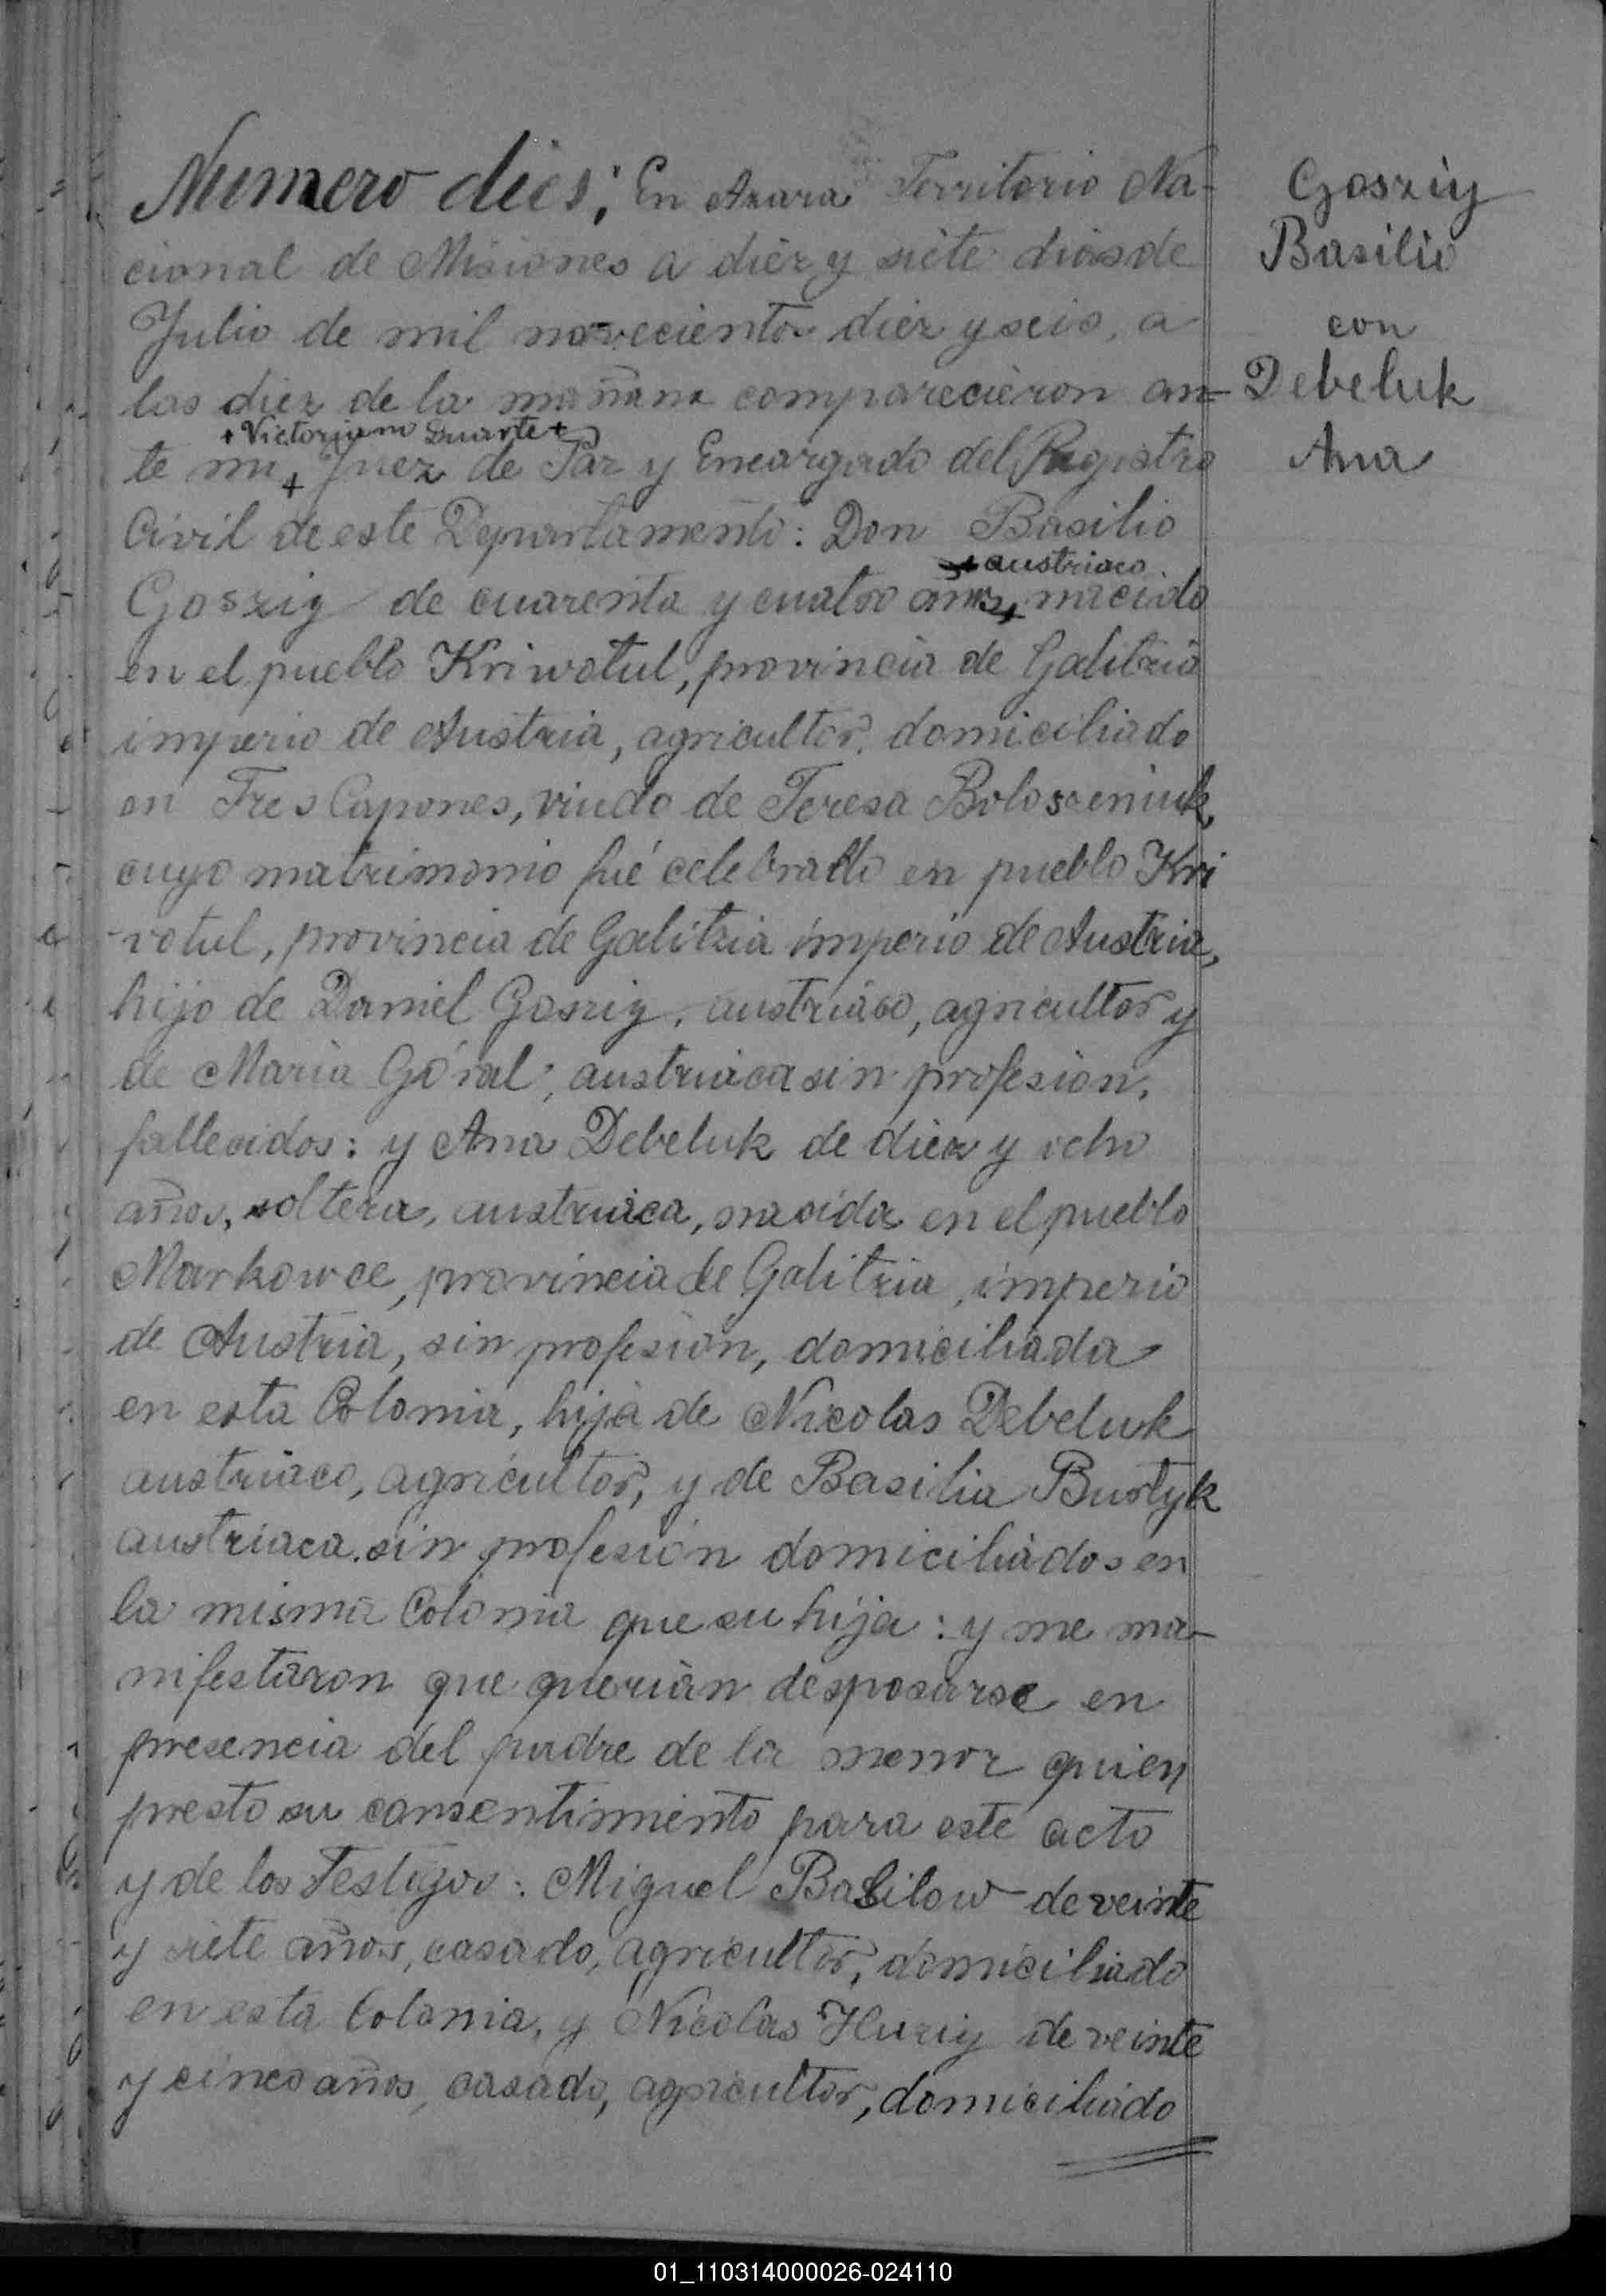 Numero dies; En Azara Territorio Na-
cional de Misiones a diez y siete dias de
Julio de mil novecientos diez y seis, a
las diez de la mañana comparecieron an-
+ Victoriano Duarte +
te mi + Juez de Paz y Encargado del Registro
Civil de este Departamento: Don Basilio
+ austriaco
Goszig de cuarenta y cuatro años, + nacido
en el pueblo Kriwotul, provincia de Galitzia
imperio de Austria, agricultor, domiciliado
en Tres Capones, viudo de Teresa Boloszeniuk,
cuyo matrimonio fué celebrado en pueblo Kri
-votul, provincia de Galitzia imperio de Austria,
hijo de Daniel Goszig, austriaco, agricultor y
de Maria Góral, austriaca sin profesion,
fallecidos: y Ana Debeluk de diez y ocho
años, soltera, austriaca, nacida en el pueblo
Markowce, provincia de Galitzia, imperio
de Austria, sin profesion, domiciliada
en esta Colonia, hija de Nicolas Debeluk
austriaco, agricultor, y de Basilia Burtyk
austriaca sin profesión domiciliados en
la misma Colonia que su hija: y me ma-
nifestaron que querian desposarse en
presencia del padre de la menor quien
presto su consentimiento para este acto
y de los Testigos: Miguel Basilow de veinte
y siete años, casado, agricultor, domiciliado
en esta Colonia, y Nicolas Huziy de veinte
y cinco años, casado, agricultor, domiciliado
Goszig
Basilio
con
Debeluk
Ana
01_110314000026-024110